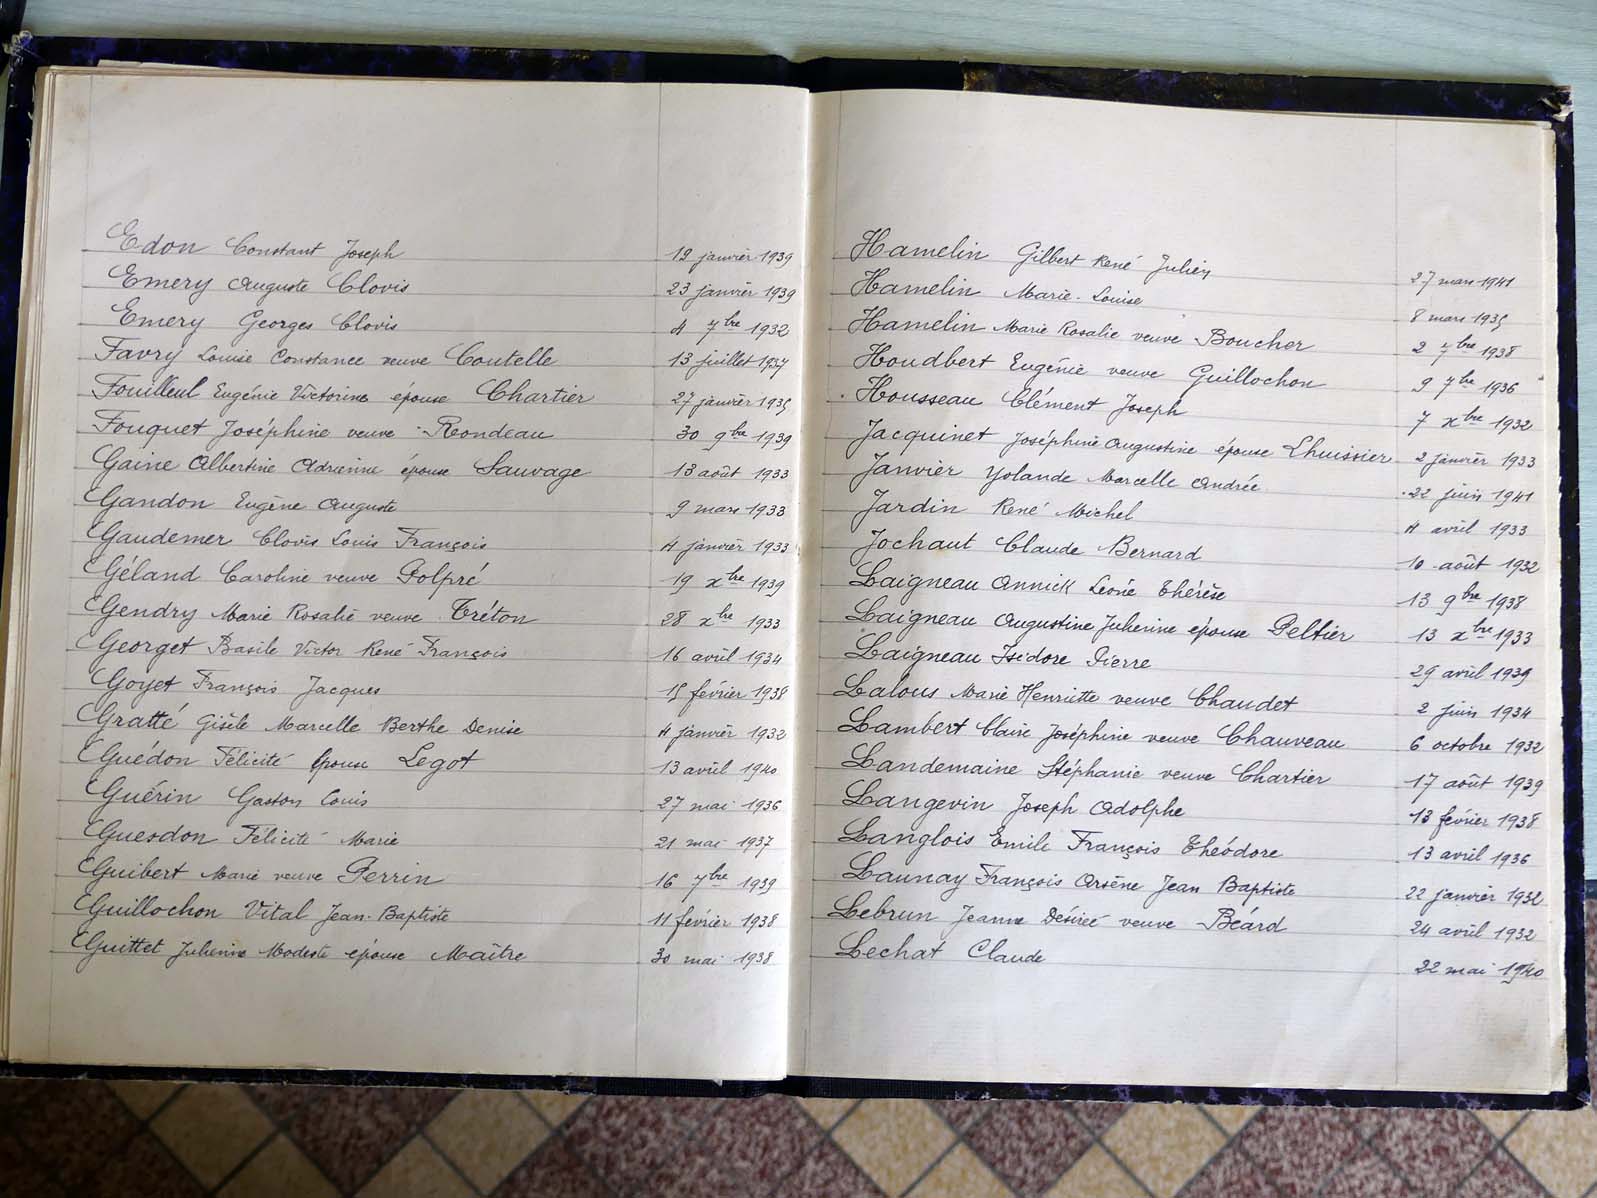 Edon Constant Joseph 19 janvier 1939
Emery Auguste Clovis 23 janvier 1939
Emery Georges Clovis 4 7bre 1932
Favry Louise Constance veuve Coutelle 13 juillet 1937
Fouilleul Eugénie Victorine épouse Chartier 27 janvier 1935
Fouquet Joséphine veuve Rondeau 30 9bre 1939
Gaine Albertine Adrienne épouse Sauvage 18 août 1933
Gandon Eugène Auguste 9 mars 1933
Gaudemer Clovis Louis François 4 janvier 1933
Géland Caroline veuve Polpré 19 xbre 1939
Gendry Marie Rosalie veuve Tréton 28 xbre 1933
Georget Basile Victor René François 16 avril 1934
Goyet François Jacques 15 février 1938
Gratté Gisèle Marcelle Berthe Denise 4 janvier 1932
Guédon Félicité épouse Legot 13 avril 1940
Guérin Gaston Louis 27 mai 1936
Guesdon Félicité Marie 21 mai 1937
Guibert Marie veuve Perrin 16 7bre 1939
Guillochon Vital Jean-Baptiste 11 février 1938
Guittet Julienne Modeste épouse Maître 30 mai 1938
Hamelin Gilbert René Julien 27 mars 1941
Hamelin Marie-Louise 8 mars 1935
Hamelin Marie Rosalie veuve Boucher 2 7bre 1938
Houdbert Eugénie veuve Guillochon 9 7bre 1936
Housseau Clément Joseph 7 xbre 1932
Jacquinet Joséphine Augustine épouse Lhuissier 2 janvier 1933
Janvier Yolande Marcelle Andrée 22 juin 1941
Jardin René Michel 4 avril 1933
Jochaut Claude Bernard 10 août 1932
Laigneau Annick Léone Thérèse 13 9bre 1938
Laigneau Augustine Julienne épouse Peltier 13 xbre 1933
Laigneau Isidore Pierre 29 avril 1939
Lalous Marie Henriette veuve Chaudet 2 juin 1934
Lambert Claire Joséphine veuve Chauveau 6 octobre 1932
Landemaine Stéphanie veuve Chartier 17 août 1939
Langevin Joseph Adolphe 13 février 1938
Langlois Emile François Théodore 13 avril 1936
Launay François Arsène Jean Baptiste 22 janvier 1932
Lebrun Jeanne Désirée veuve Béard 24 avril 1932
Lechat Claude 22 mai 1940